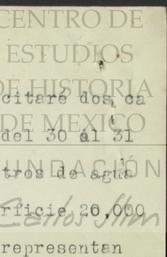 CENTRO DE
ESTUDIOS
DE HISTORIA
citaré dos ca
DE MEXICO
del 30 al 31
FUNDACIÓN
tros de agua
Carlos Slim
rficie 20,000
representan